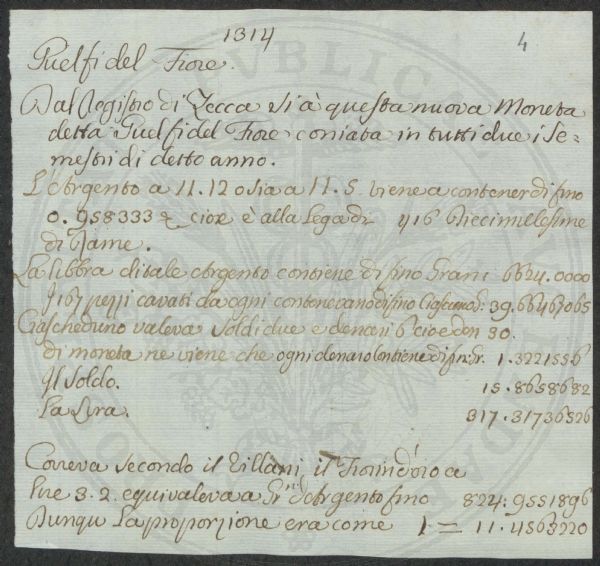 1314
4
Guelfi del Fiore.
Dal Registro di Zecca si à questa nuova Moneta
detta Guelfi del Fiore coniata in tutti due i Se=
mestri di detto anno.
L'Argento a 11.12 o sia a 11.5. viene a contener di fino
0.958333 cioè è alla Lega di 416 Diecimillesime
di Rame.
La Libbra di tale Argento contiene di fino Grani 6624.0000
I 167 pezzi cavati da ogni contenevano di fino Ciascuno: 39.66467065
Ciascheduno valeva Soldi due e denari 6 cioè den 30.
di moneta ne viene che ogni denaro contiene di fin. Gr. 1.3221556
Il Soldo. 15.8658682
La Lira. 317.31736526
Correva secondo il Villani, il Fiorin d'oro a
Lire 3.2. equivaleva a Gr.ni d'Argento fino 824.9551896
Dunqu La proporzione era come 1 = 11.4563220